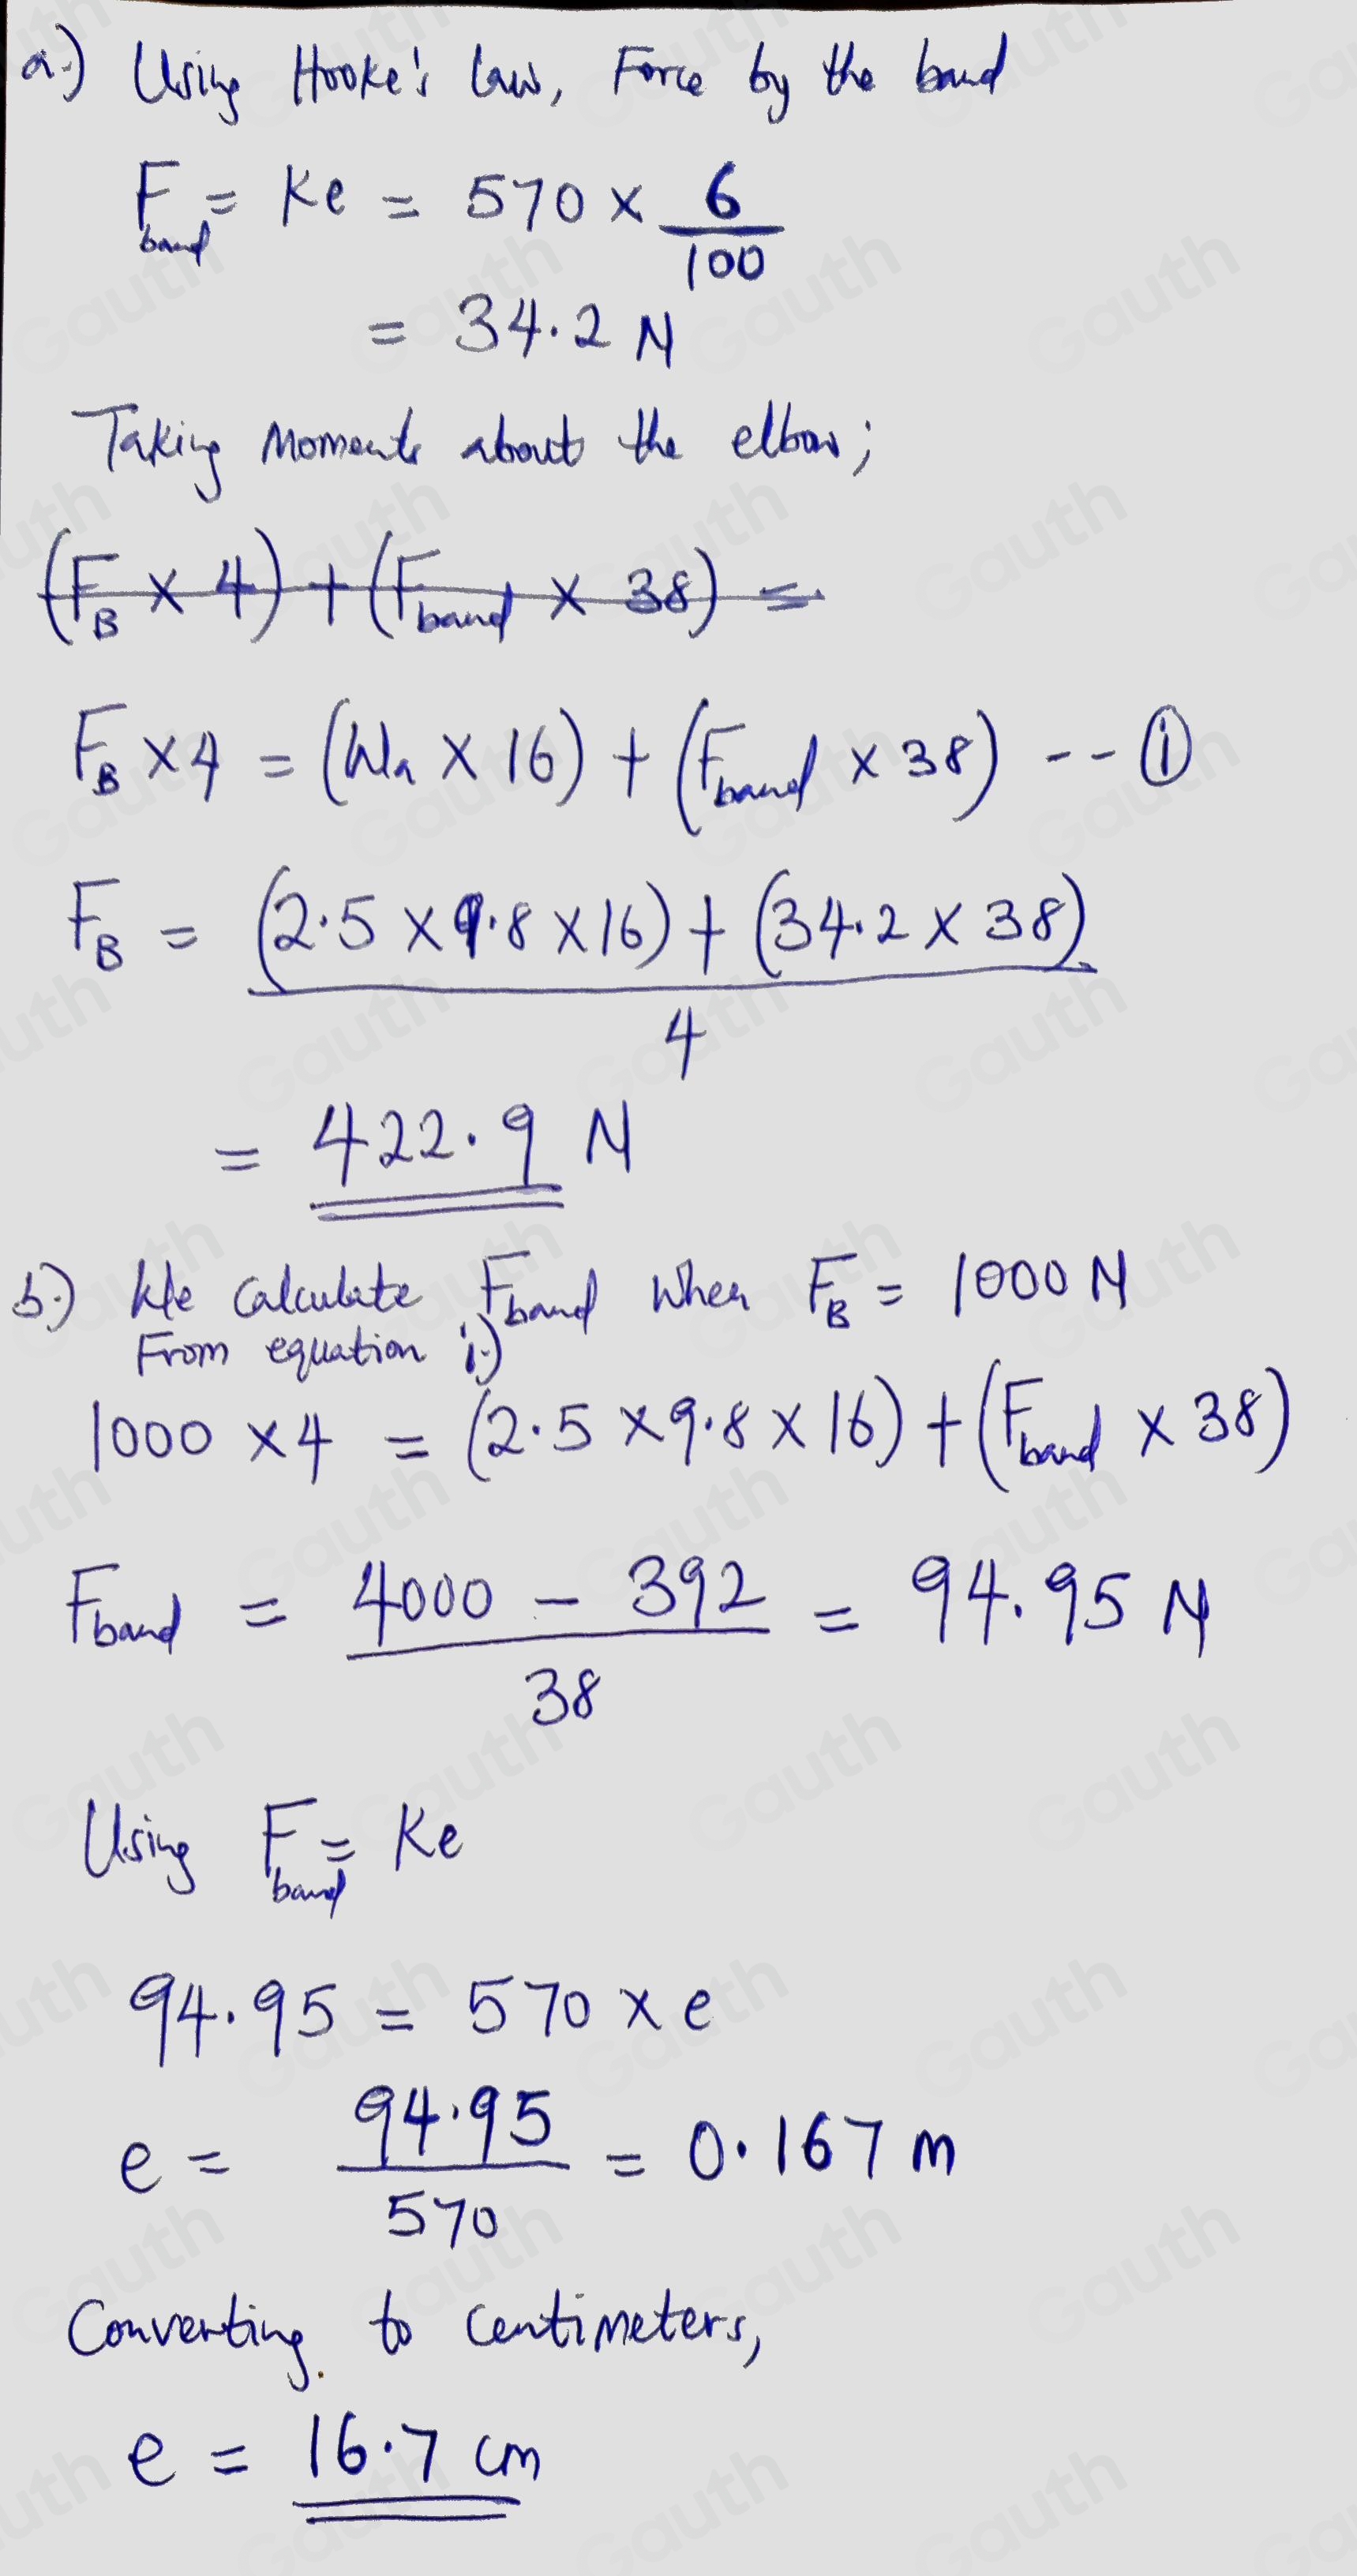 a.) Using Hooke's Law, Force by the band
F_band = Ke = 570 × 6/100
= 34.2 N
Taking Moments about the elbow;
(F_B × 4) + (F_band × 38) =
F_B × 4 = (Wa × 16) + (F_band × 38) -- ①
F_B = (2.5 × 9.8 × 16) + (34.2 × 38) / 4
= 422.9 N
b.) We Calculate F_band when F_B = 1000 N
From equation i.)
1000 × 4 = (2.5 × 9.8 × 16) + (F_band × 38)
F_band = 4000 - 392 / 38 = 94.95 N
Using F_band = Ke
94.95 = 570 × e
e = 94.95/570 = 0.167 m
Converting to centimeters,
e = 16.7 cm
Gauth